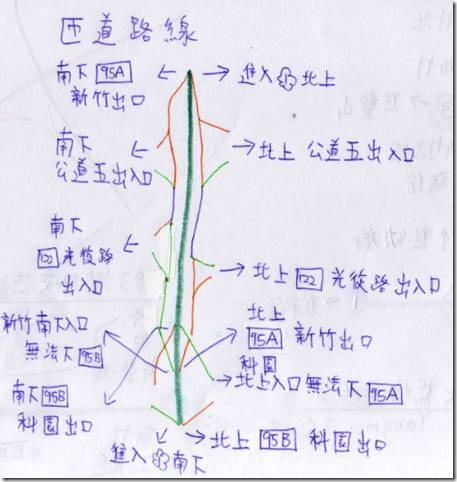 匝道路線
南下 95A
新竹出口
進入 北上
南下
公道五出入口
北上 公道五出入口
南下
122 光復路
出入口
北上 122 光復路出入口
新竹南下入口
無法下 95B
北上
95A 新竹出口
科園
北上入口 無法下 95A
南下 95B
科園出口
北上 95B 科園出口
進入 南下